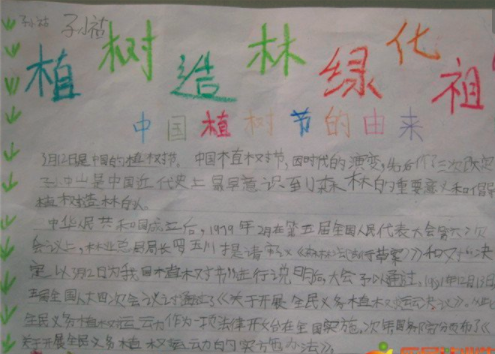 孙祜 子祜
植树造林绿化祖
中国植树节的由来
3月12日是中国的植树节,中国植树节,因时代的演变,先后作了三次改
孙中山是中国近代史上最早意识到森林的重要意义和倡
植树造林的人
中华人民共和国成立后,1979年2月在第五届全国人民代表大会第六次
会议上,林业总局局长罗玉川提请 《森林法(草案)》和
定以3月12日为我国植树节进行说明后大会予以通过。1981年12月13日
五届全国人大四次会议讨论通过《关于开展全民义务植树运动决议》。
全民义务植树运动作为一项法律开始在全国实施。次年国务院颁布了《
关于开展全民义务植树运动的实施办法》。